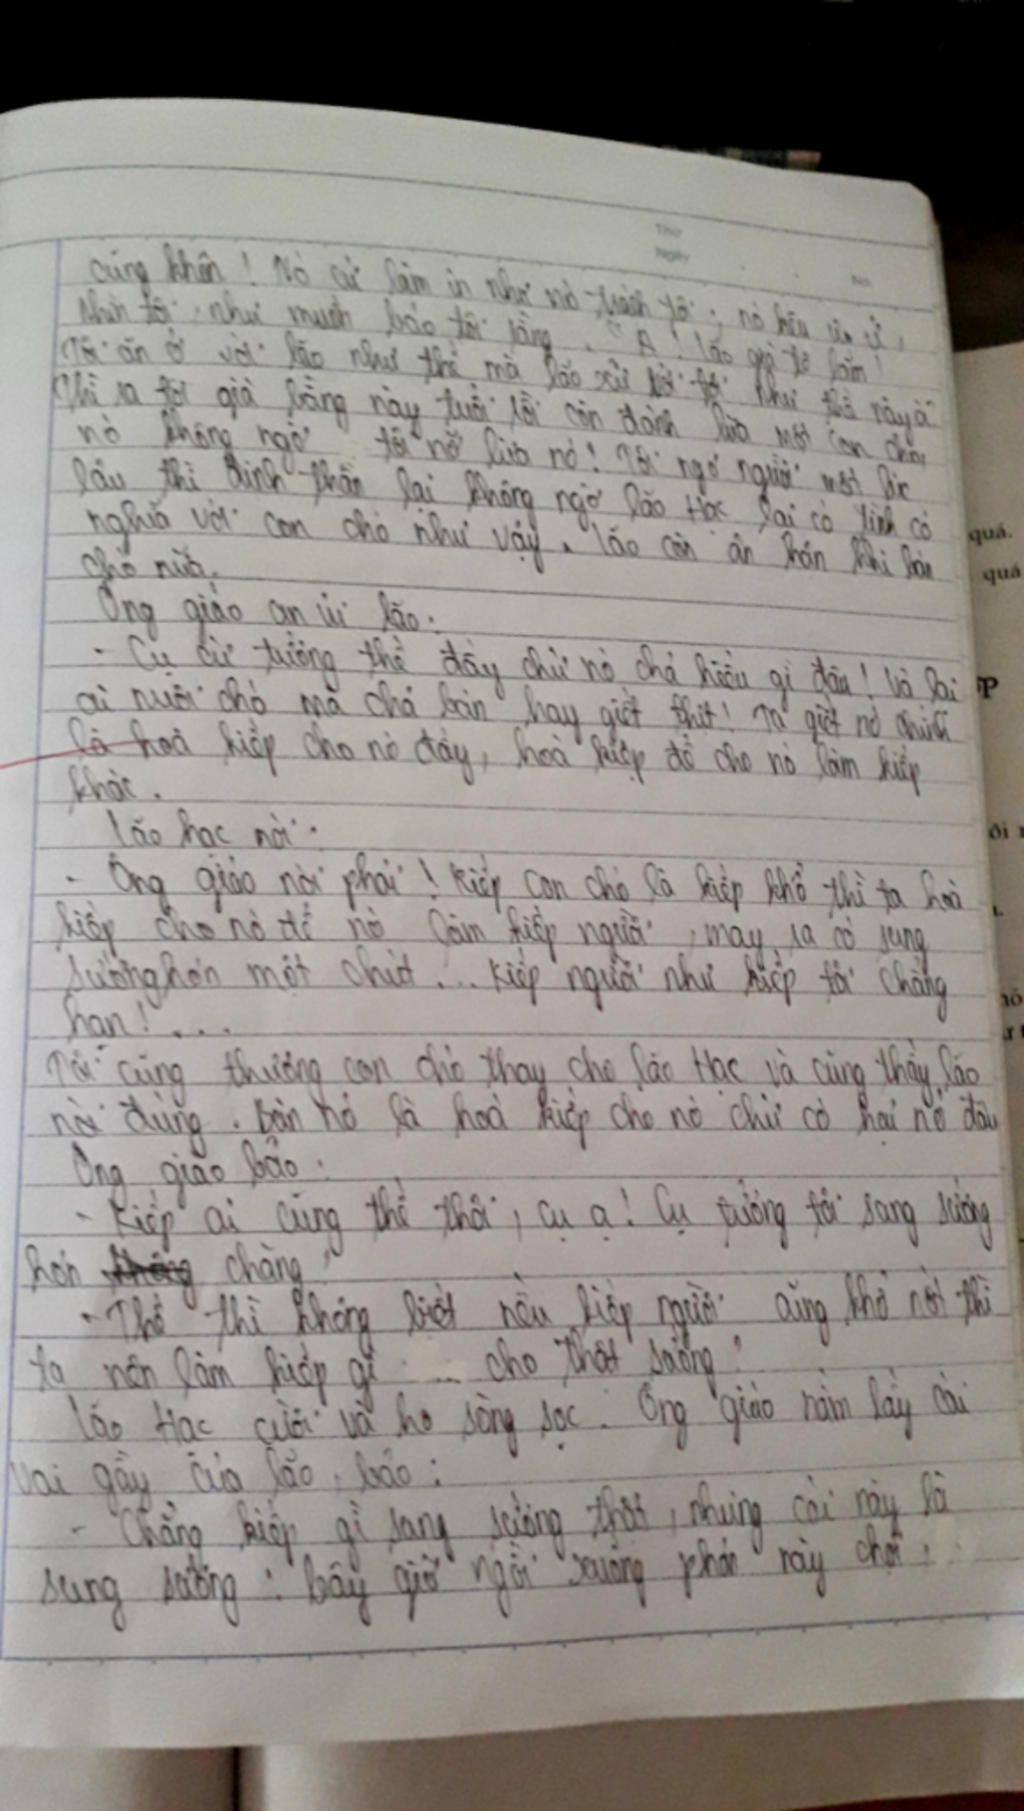 Thứ
Ngày
No.
cũng khôn! Nó cứ làm in như nó trách tôi; nó kêu ư ử,
nhìn tôi, như muốn bảo tôi rằng. "A! lão già tệ lắm!
Tôi ăn ở với lão như thế mà lão xử với tôi như thế này à"
Thì ra tôi già bằng này tuổi rồi còn đánh lừa một con chó,
nó không ngờ tôi nỡ lừa nó! Tôi ngơ người một lúc
lâu thì định thần lại không ngờ lão Hạc lại có tình có
nghĩa với con chó như vậy. lão còn ân hận khi bán
chó nữa.
Ông giáo an ủi lão:
- Cụ cứ tưởng thế đấy chứ nó chả hiểu gì đâu! Vả lại
ai nuôi chó mà chả bán hay giết thịt! Ta giết nó chính
là hoá kiếp cho nó đấy, hoá kiếp để cho nó làm kiếp
khác.
lão hạc nói:
- Ông giáo nói phải! Kiếp con chó là kiếp khổ thì ta hoá
kiếp cho nó để nó làm kiếp người, may ra có sung
sướng hơn một chút... kiếp người như kiếp tôi chẳng
hạn!...
Tôi cũng thương con chó thay cho lão Hạc và cũng thấy lão
nói đúng. bán nó là hoá kiếp cho nó chứ có hại nó đâu
Ông giáo bảo:
- Kiếp ai cũng thế thôi, cụ ạ! Cụ tưởng tôi sang sướng
hơn chăng?
- Thế thì không biết nếu kiếp người cũng khổ nốt thì
ta nên làm kiếp gì ... cho thật sướng?
lão Hạc cười và ho sòng sọc. Ông giáo nắm lấy cái
vai gầy của lão, bảo:
- Chẳng kiếp gì sang sướng thật, nhưng cái này là
sung sướng: bây giờ ngồi xuống phản này chơi,
quá.
quá